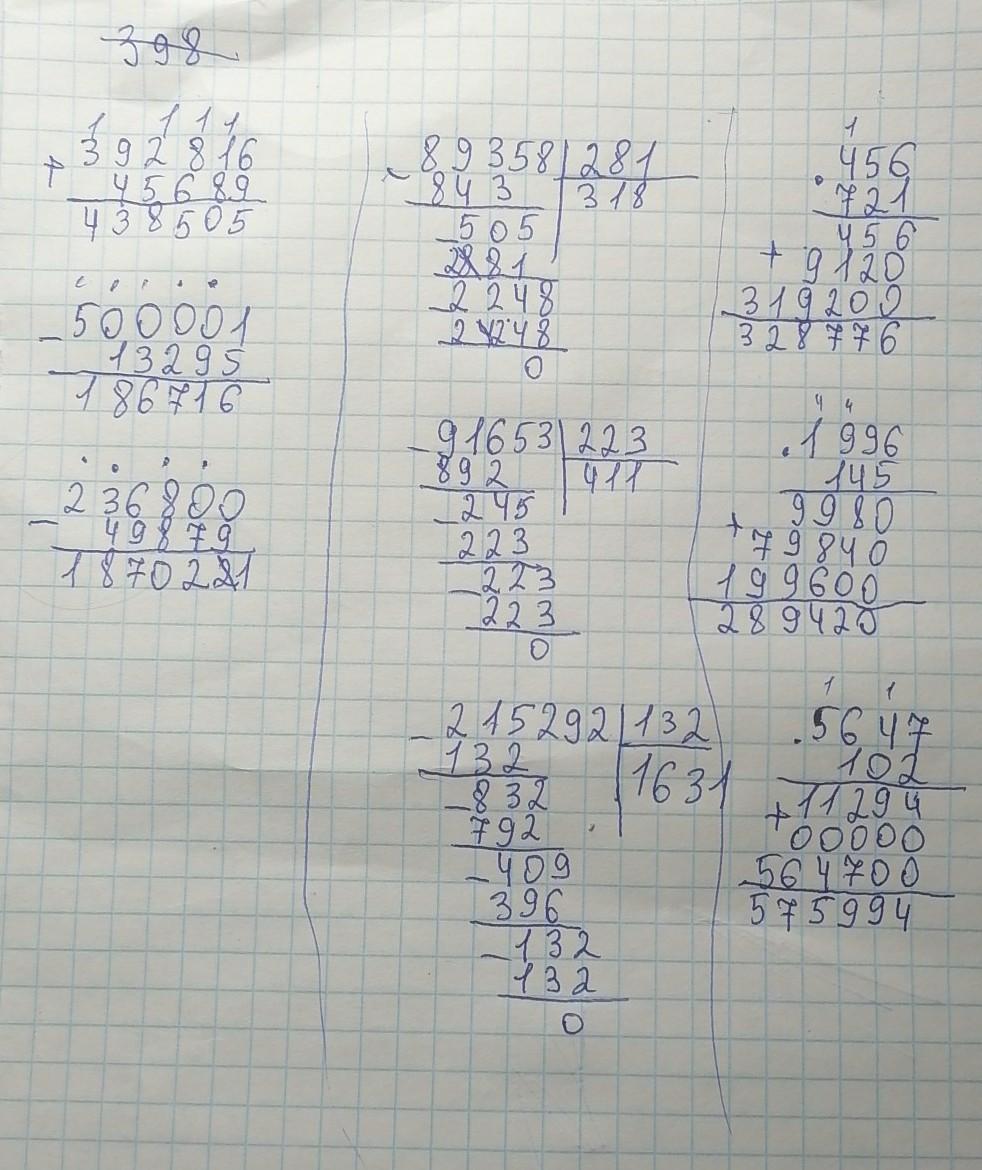 398
1 1 1 1
392816
+
45689
438505
500001
-
13295
186716
236800
-
49879
1870221
- 89358 281
843 318
- 505
281
- 2248
2248
0
- 91653 223
892 411
- 245
223
- 223
223
0
- 215292 132
132 1631
- 832
792
- 409
396
- 132
132
0
1
. 456
721
456
+ 9120
319200
328776
4 4
. 1996
145
9980
+ 79840
199600
289420
1 1
. 5647
102
+ 11294
00000
564700
575994